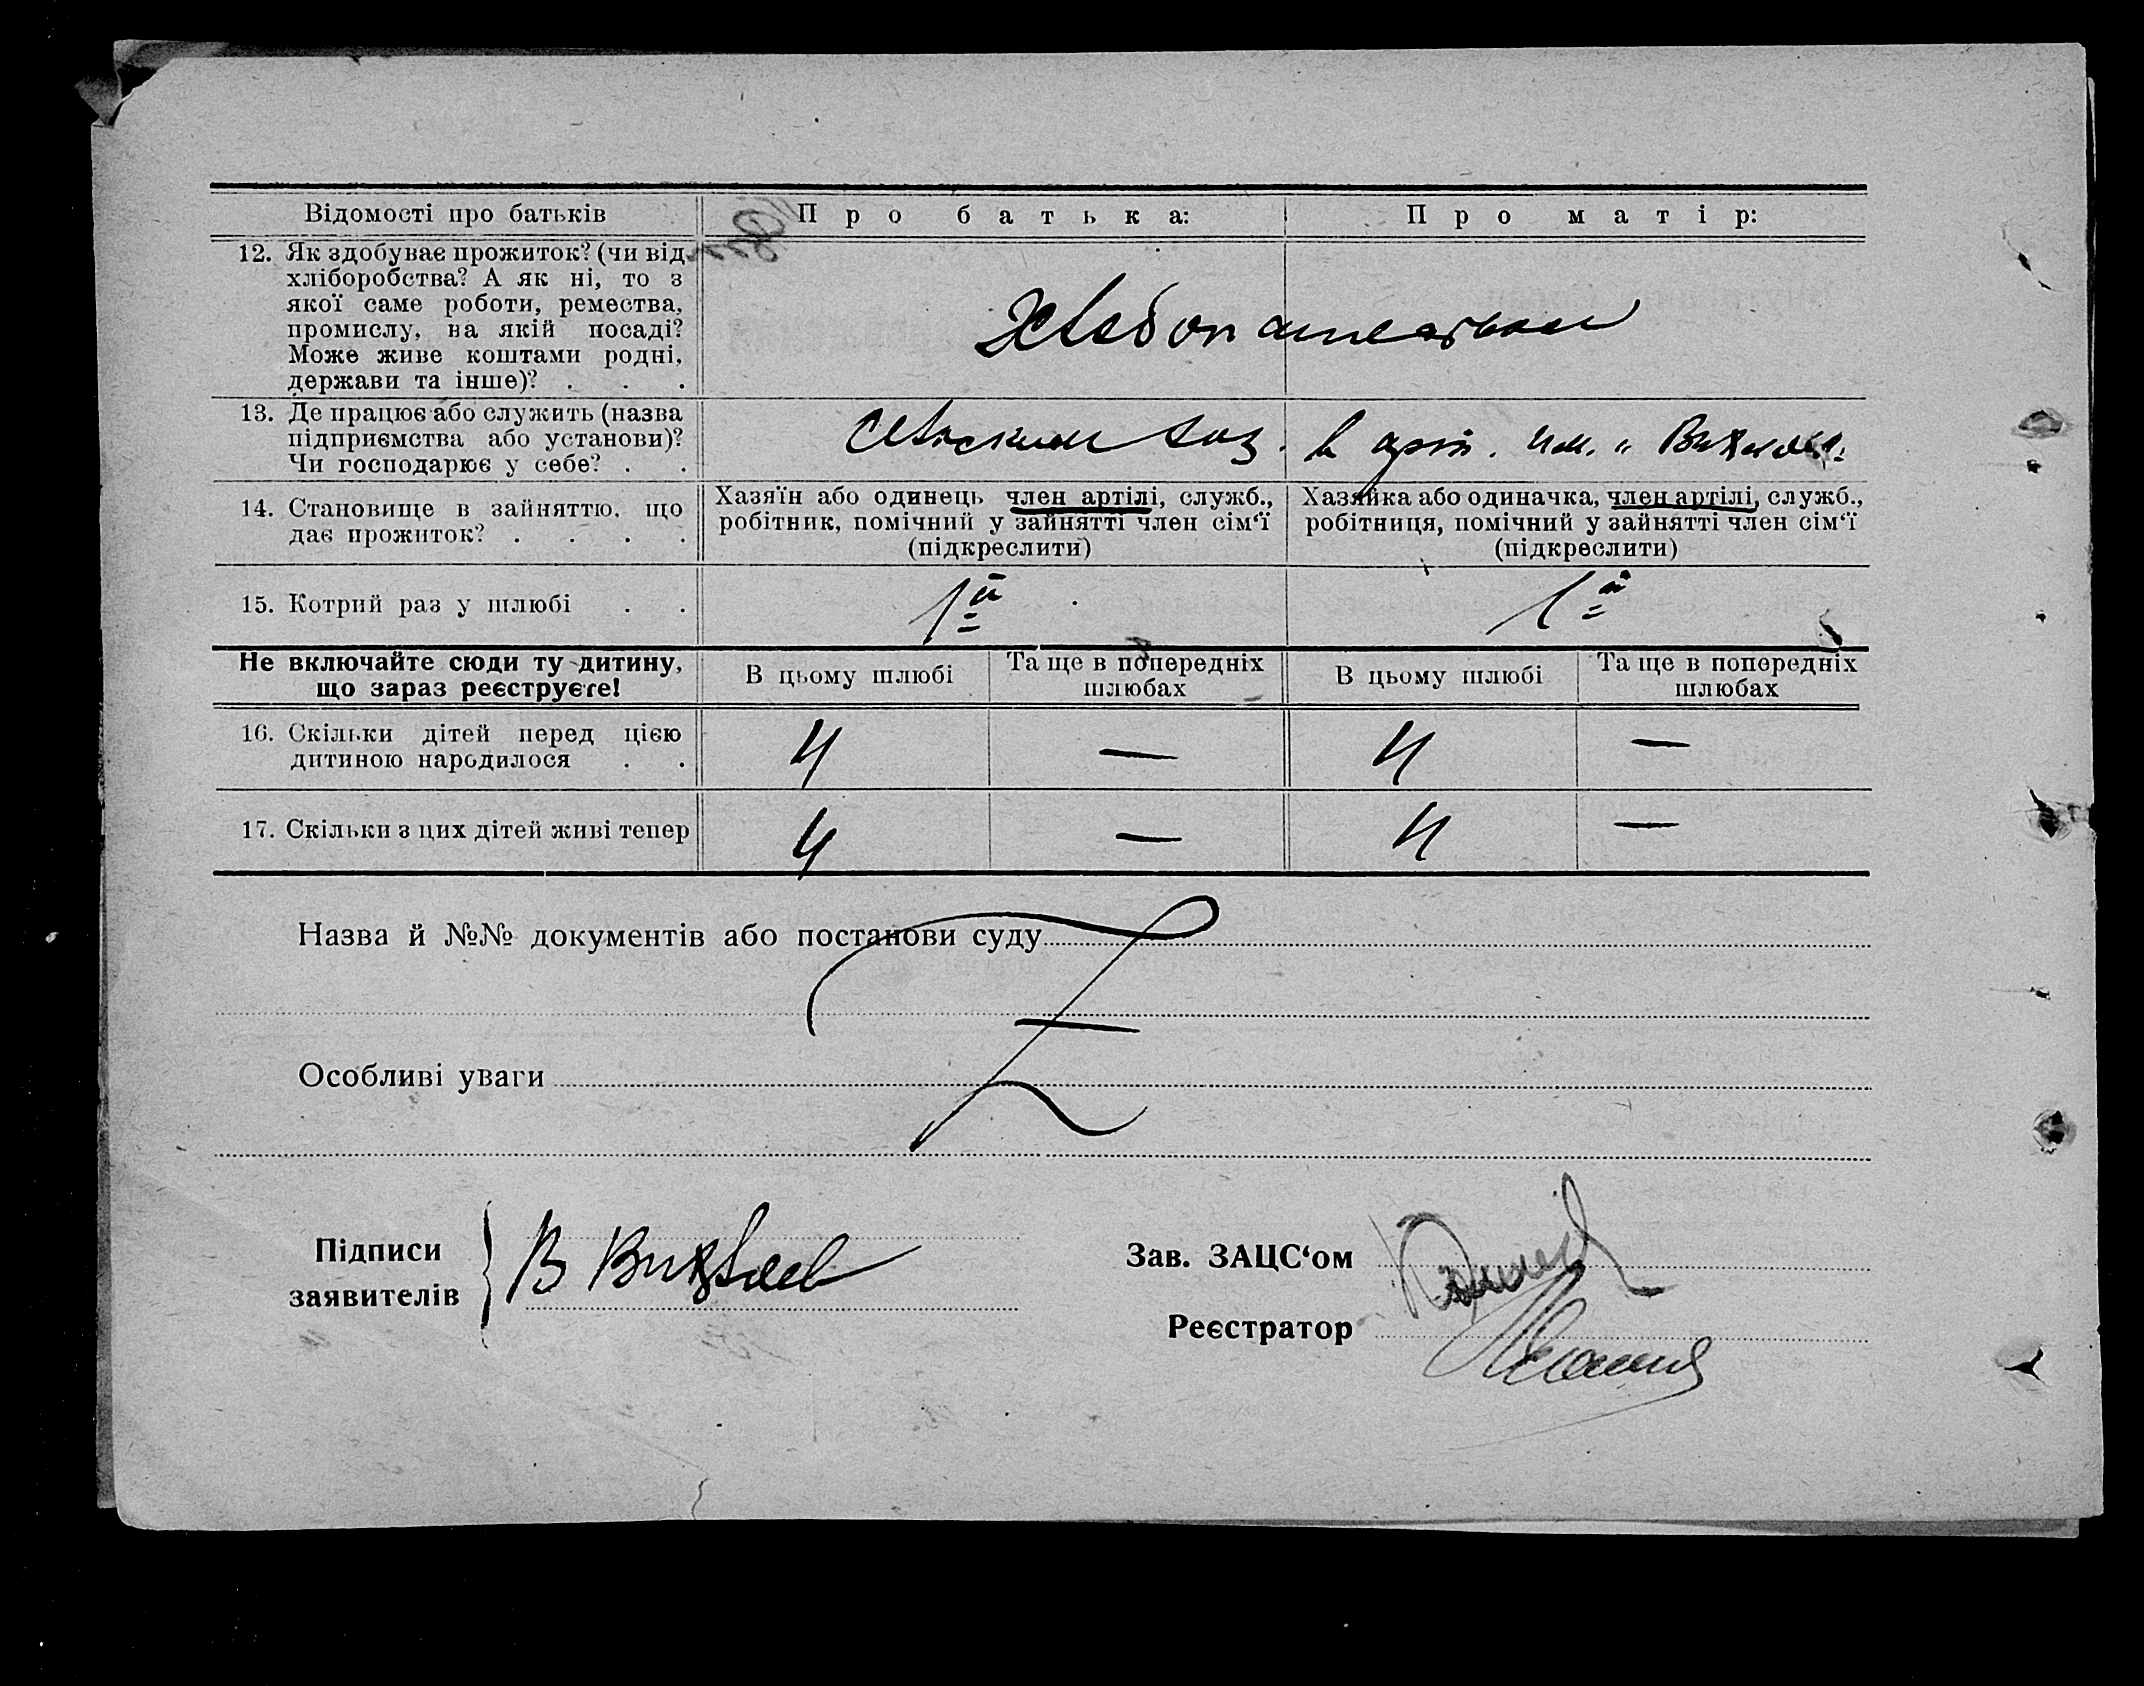 Відомості про батьків Про батька: Про матір:
12. Як здобуває прожиток? (чи від
хліборобства? А як ні, то з
якої саме роботи, ремества,
промислу, на якій посаді?
Може живе коштами родні,
держави та інше)? . . .
Хлебопашеством
13. Де працює або служить (назва
підприємства або установи)?
Чи господарює у себе? . .
Сельским хоз. в арт. им. "
14. Становище в зайняттю, що
дає прожиток? . . . .
Хазяїн або одинець член артілі, служб.,
робітник, помічний у зайнятті член сім‘ї
(підкреслити)
Хазяйка або одиначка, член артілі, служб.,
робітниця, помічний у зайнятті член сім‘ї
(підкреслити)
15. Котрий раз у шлюбі . . 1й 1й
Не включайте сюди ту дитину,
що зараз реєструєте!
В цьому шлюбі
Та ще в попередніх
шлюбах
В цьому шлюбі
Та ще в попередніх
шлюбах
16. Скільки дітей перед цією
дитиною народилося . .
4 — 4 —
17. Скільки з цих дітей живі тепер 4 — 4 —
Назва й №№ документів або постанови суду
Особливі уваги
Підписи
заявителів
В
Зав. ЗАЦС‘ом
Реєстратор